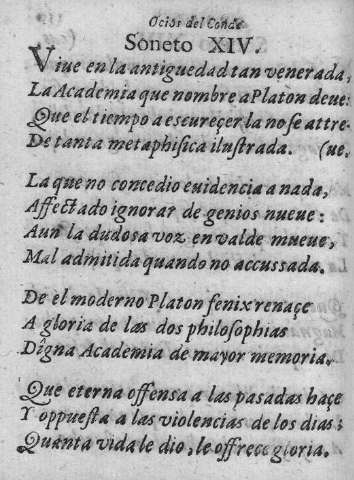 Ocios del Conde
Soneto XIV.
Viue en la antiguedad tan venerada,
La Academia que nombre a Platon deue:
Que el tiempo a escureçer la no se attre-
De tanta metaphisica ilustrada. (ue.
La que no concedio euidencia a nada,
Affectado ignorar de genios nueue:
Aun la dudosa voz en valde mueue,
Mal admitida quando no accussada.
De el moderno Platon fenix renaçe
A gloria de las dos philosophias
Digna Academia de mayor memoria.
Que eterna offensa a las pasadas haçe
Y oppuesta a las violencias de los dias;
Quanta vida le dio, le offreçe gloria.